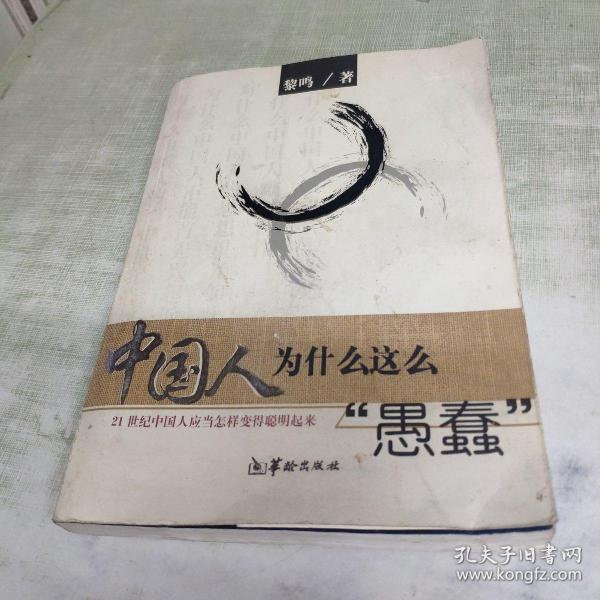 黎鸣/著
中国人为什么这么
“愚蠢”
21世纪中国人应当怎样变得聪明起来
华龄出版社
孔夫子旧书网
www.kongfz.com